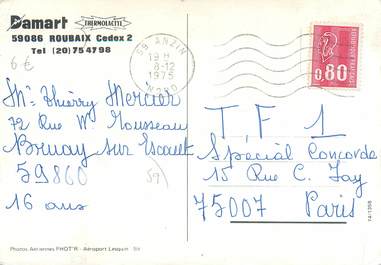 Damart THERMOLACTYL
59086 ROUBAIX Cedex 2
Tel (20) 754798
6 €
59 ANZIN
19 H
8-12
1975
NORD
0,80
Mr Thierry Mercier
72 Rue W. Rousseau
Bruay sur Escaut
59860
16 ans
59
T F 1
Spécial Concorde
15 Rue C. Jay
75007 Paris
Photos Aeriennes PHOT'R - Aéroport Lesquin 59